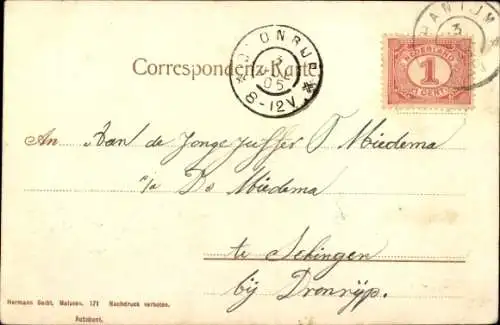 HANTUM
3
DRONRIJP
3
05
8-12V
Correspondenz-Karte.
NEDERLAND
1
CENT
An Aan de Jonge Juffer T Miedema
p/a Ds Miedema
te Schingen
bij Dronrijp.
Hermann Seibt, Meissen. 171 Nachdruck verboten.
Autobunt.